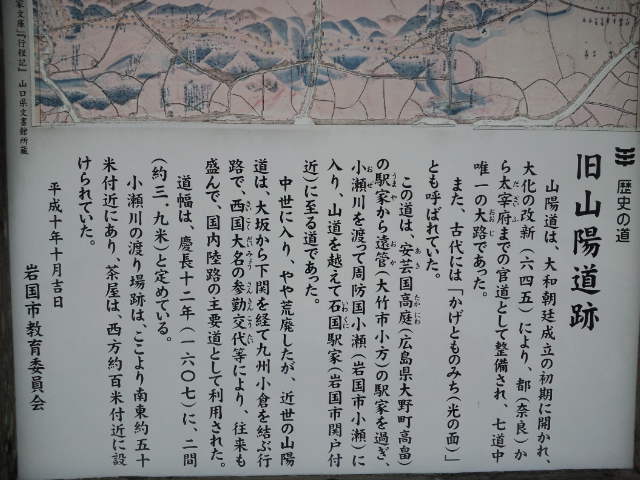 歴史の道
旧山陽道跡
山陽道は、大和朝廷成立の初期に開かれ、
大化の改新（六四五）により、都（奈良）か
ら太宰府までの官道として整備され、七道中
唯一の大路であった。
また、古代には「かげとものみち（光の面）」
とも呼ばれていた。
この道は、安芸国高庭（広島県大野町高畠）
の駅家から遠管（大竹市小方）の駅家を過ぎ、
小瀬川を渡って周防国小瀬（岩国市小瀬）に
入り、山道を越えて石国駅家（岩国市関戸付
近）に至る道であった。
中世に入り、やや荒廃したが、近世の山陽
道は、大坂から下関を経て九州小倉を結ぶ行
路で、西国大名の参勤交代等により、往来も
盛んで、国内陸路の主要道として利用された。
道幅は、慶長十二年（一六〇七）に、二間
（約三、九米）と定めている。
小瀬川の渡り場跡は、ここより南東約五十
米付近にあり、茶屋は、西方約百米付近に設
けられていた。
平成十年十月吉日
岩国市教育委員会
家文庫』『行程記』 山口県文書館所蔵